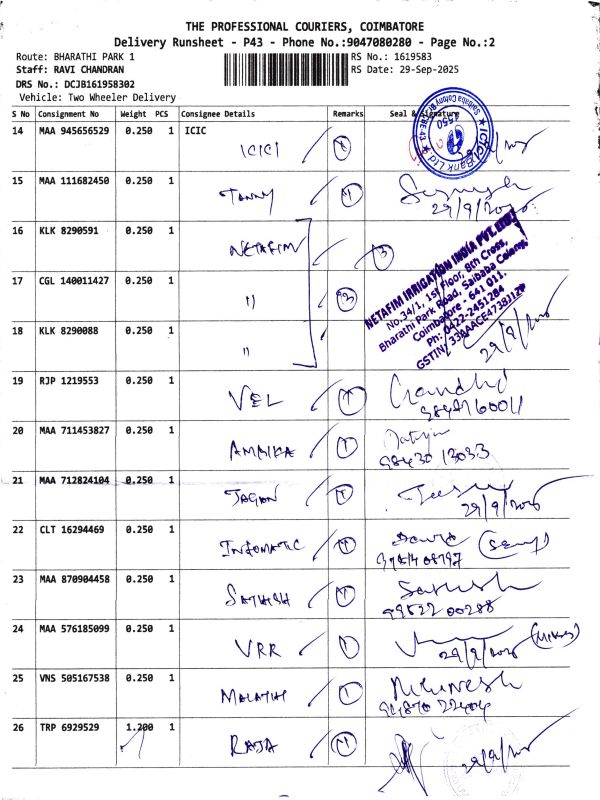 THE PROFESSIONAL COURIERS, COIMBATORE
Delivery Runsheet - P43 - Phone No.:9047080280 - Page No.:2
Route: BHARATHI PARK 1 RS No.: 1619583
Staff: RAVI CHANDRAN RS Date: 29-Sep-2025
DRS No.: DCJB161958302
Vehicle: Two Wheeler Delivery
S No Consignment No Weight PCS Consignee Details Remarks Seal & Signature
14 MAA 945656529 0.250 1 ICIC
ICICI
ICICI Bank Ltd
Saibaba Colony
15 MAA 111682450 0.250 1
29/9/2025
16 KLK 8290591 0.250 1 NETAFIM 3
17 CGL 140011427 0.250 1 " 3
18 KLK 8290088 0.250 1 "
NETAFIM IRRIGATION INDIA PVT. LTD.
No.34/1, 1st Floor, 8th Cross,
Bharathi Park Road, Saibaba Colony,
Coimbatore - 641 011.
Ph: 0422-2451284
29/9/2025
19 RJP 1219553 0.250 1 VEL 1
20 MAA 711453827 0.250 1 AMBIKA 1
98430 13033
21 MAA 712824104 0.250 1 JAGAN 1
29/9/2025
22 CLT 16294469 0.250 1 INFOMATIC 1
23 MAA 870904458 0.250 1 SATHISH 1 Sathish
99522 00288
24 MAA 576185099 0.250 1 VRR 1
29/9/2025
25 VNS 505167538 0.250 1 MALATHI 1
26 TRP 6929529 1.200 1 RAJA 1
29/9/2025